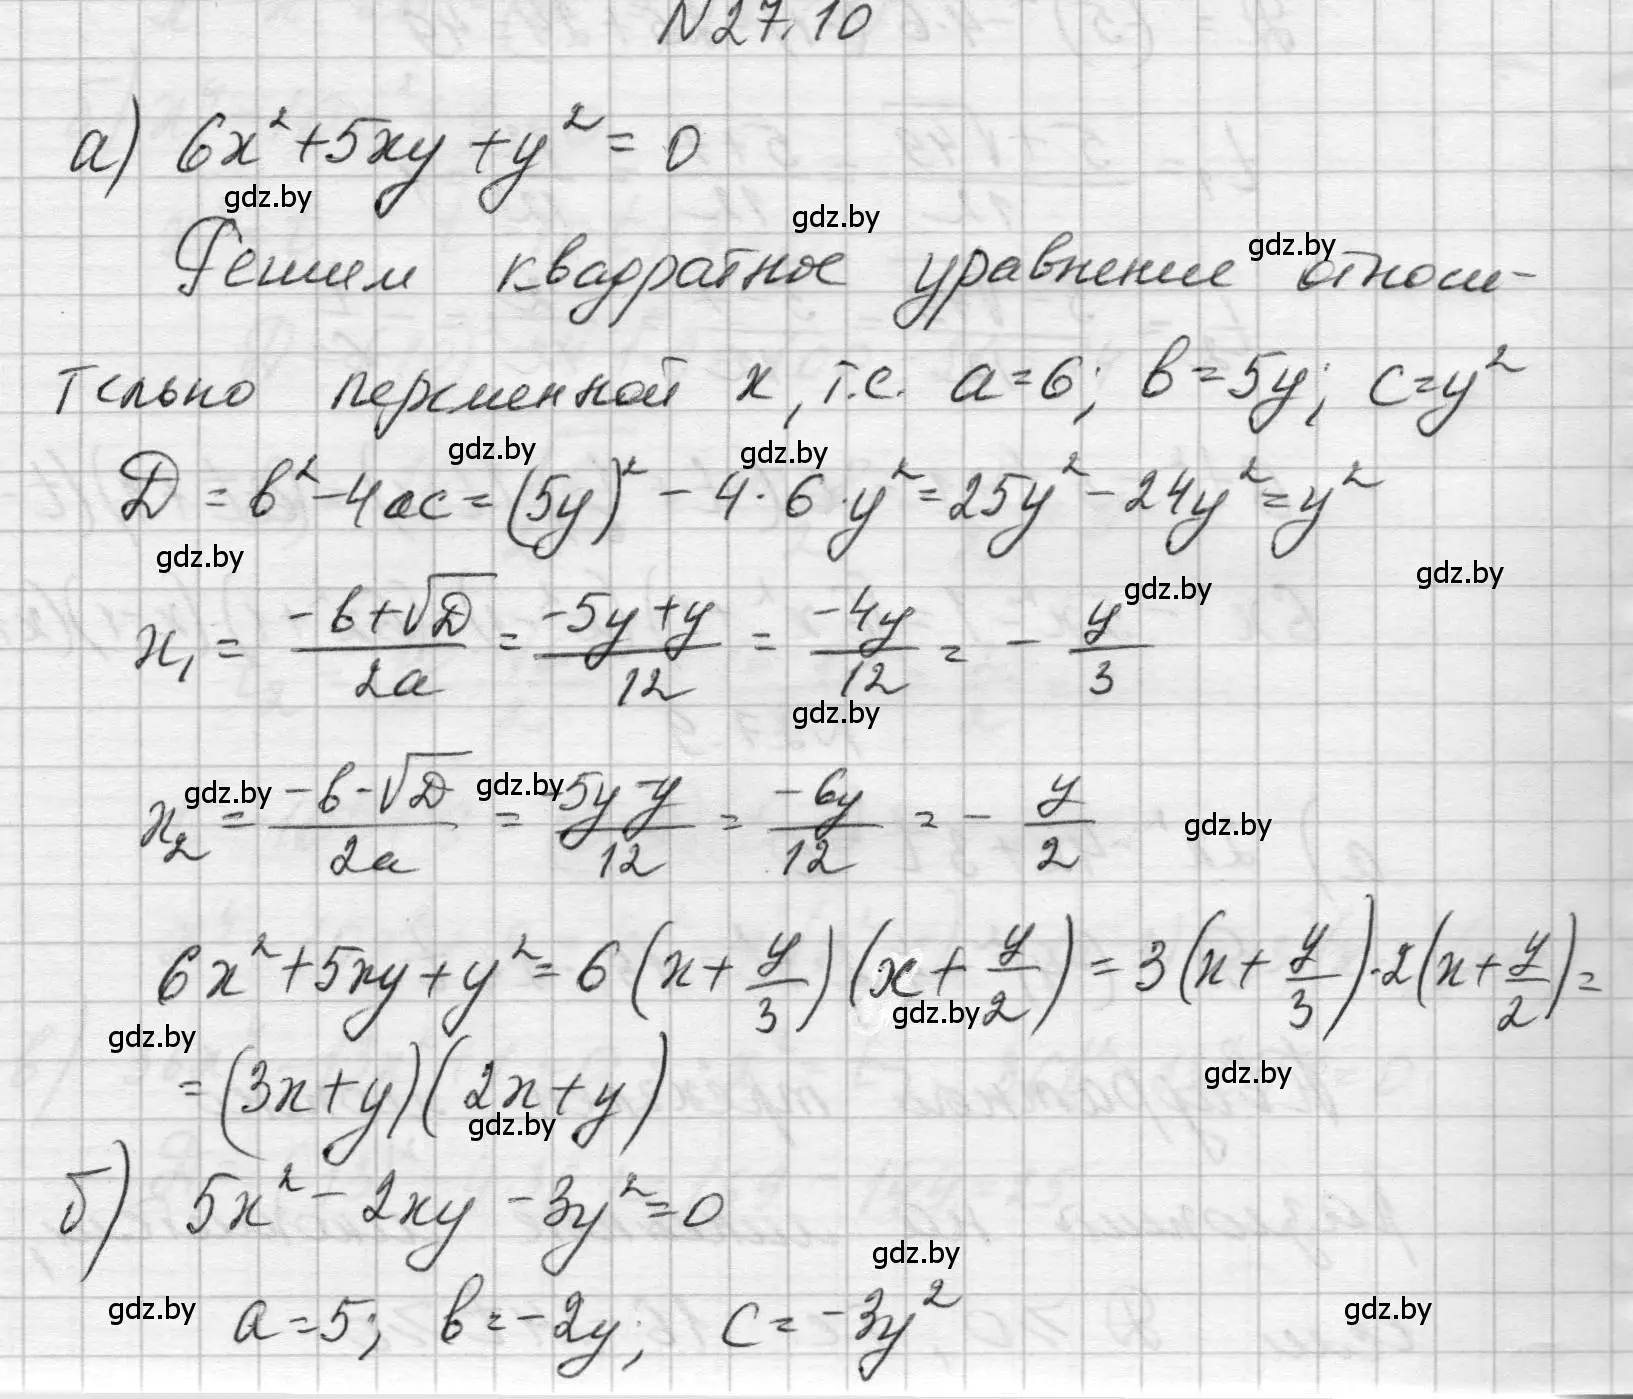 N27.10
а) 6x² + 5xy + y² = 0
gdz.by
gdz.by
gdz.by
Решим квадратное уравнение относи-
тельно переменной x, т.е. a = 6; b = 5y; c = y²
gdz.by
gdz.by
D = b² - 4ac = (5y)² - 4 · 6 · y² = 25y² - 24y² = y²
gdz.by
gdz.by
gdz.by
x₁ = (-b + √D)/(2a) = (-5y + y)/12 = (-4y)/12 = - y/3
gdz.by
gdz.by
gdz.by
x₂ = (-b - √D)/(2a) = (-5y - y)/12 = (-6y)/12 = - y/2
gdz.by
6x² + 5xy + y² = 6(x + y/3)(x + y/2) = 3(x + y/3) · 2(x + y/2) =
gdz.by
gdz.by
= (3x + y)(2x + y)
gdz.by
gdz.by
б) 5x² - 2xy - 3y² = 0
gdz.by
a = 5; b = -2y; c = -3y²
gdz.by
gdz.by